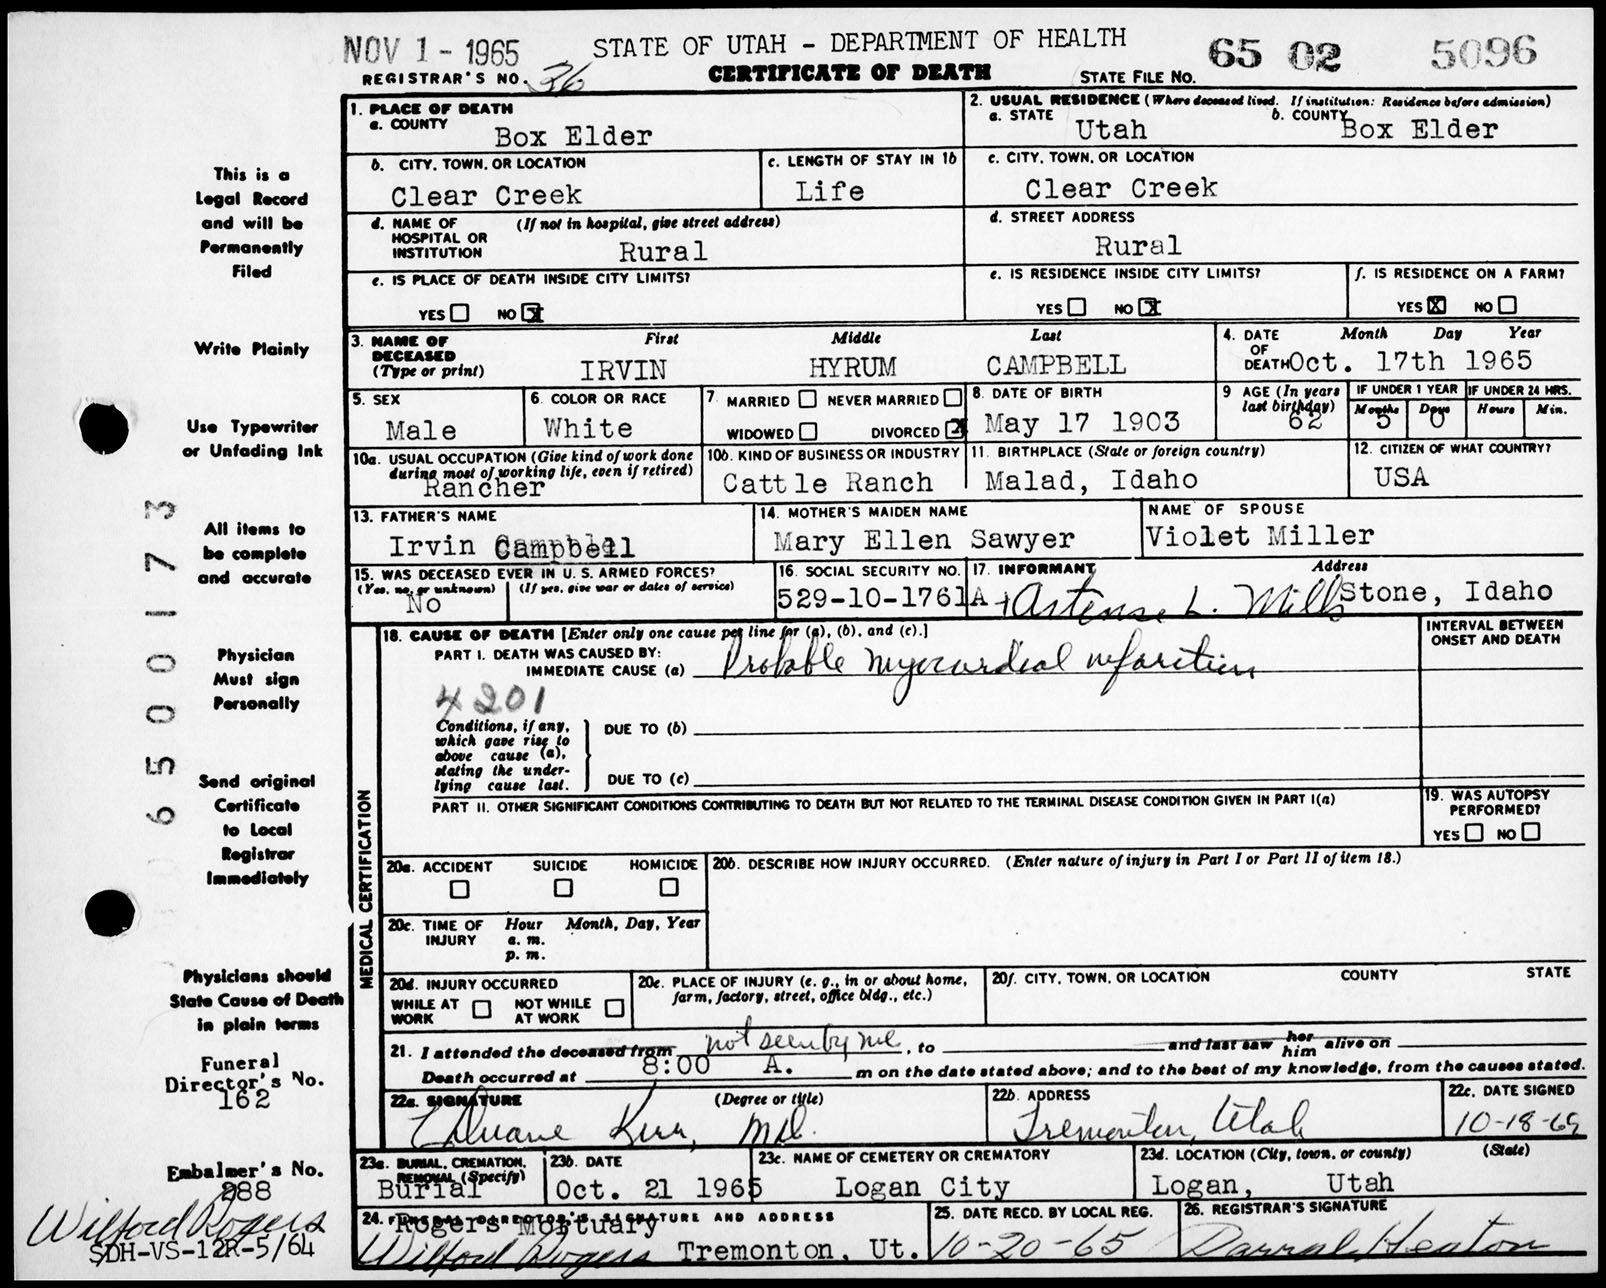 NOV 1 - 1965
STATE OF UTAH - DEPARTMENT OF HEALTH
65 02 5096
REGISTRAR'S NO. 36
CERTIFICATE OF DEATH
STATE FILE NO.
1. PLACE OF DEATH
a. COUNTY
Box Elder
2. USUAL RESIDENCE (Where deceased lived. If institution: Residence before admission)
a. STATE
Utah
b. COUNTY
Box Elder
b. CITY, TOWN, OR LOCATION
Clear Creek
c. LENGTH OF STAY IN 1b
Life
c. CITY, TOWN, OR LOCATION
Clear Creek
d. NAME OF HOSPITAL OR INSTITUTION
(If not in hospital, give street address)
Rural
d. STREET ADDRESS
Rural
e. IS PLACE OF DEATH INSIDE CITY LIMITS?
YES NO X
e. IS RESIDENCE INSIDE CITY LIMITS?
YES NO X
f. IS RESIDENCE ON A FARM?
YES X NO
3. NAME OF DECEASED (Type or print)
First Middle Last
IRVIN HYRUM CAMPBELL
4. DATE OF DEATH
Month Day Year
Oct. 17th 1965
5. SEX
Male
6. COLOR OR RACE
White
7. MARRIED NEVER MARRIED
WIDOWED DIVORCED X
8. DATE OF BIRTH
May 17 1903
9 AGE (In years last birthday)
62
IF UNDER 1 YEAR
Months Days
5 0
IF UNDER 24 HRS.
Hours Min.
10a. USUAL OCCUPATION (Give kind of work done during most of working life, even if retired)
Rancher
10b. KIND OF BUSINESS OR INDUSTRY
Cattle Ranch
11. BIRTHPLACE (State or foreign country)
Malad, Idaho
12. CITIZEN OF WHAT COUNTRY?
USA
13. FATHER'S NAME
Irvin Campbell
14. MOTHER'S MAIDEN NAME
Mary Ellen Sawyer
NAME OF SPOUSE
Violet Miller
15. WAS DECEASED EVER IN U. S. ARMED FORCES?
(Yes, no, or unknown) (If yes, give war or dates of service)
No
16. SOCIAL SECURITY NO.
529-10-1761A
17. INFORMANT Address
L. Mills Stone, Idaho
MEDICAL CERTIFICATION
18. CAUSE OF DEATH [Enter only one cause per line for (a), (b), and (c).]
PART I. DEATH WAS CAUSED BY:
IMMEDIATE CAUSE (a) Probable myocardial infarction
INTERVAL BETWEEN ONSET AND DEATH
4201
Conditions, if any, which gave rise to above cause (a), stating the underlying cause last.
DUE TO (b)
DUE TO (c)
PART II. OTHER SIGNIFICANT CONDITIONS CONTRIBUTING TO DEATH BUT NOT RELATED TO THE TERMINAL DISEASE CONDITION GIVEN IN PART I(a)
19. WAS AUTOPSY PERFORMED?
YES NO
20a. ACCIDENT SUICIDE HOMICIDE
20b. DESCRIBE HOW INJURY OCCURRED. (Enter nature of injury in Part I or Part II of item 18.)
20c. TIME OF INJURY
Hour Month, Day, Year
a. m.
p. m.
20d. INJURY OCCURRED
WHILE AT WORK NOT WHILE AT WORK
20e. PLACE OF INJURY (e. g., in or about home, farm, factory, street, office bldg., etc.)
20f. CITY, TOWN, OR LOCATION COUNTY STATE
21. I attended the deceased from not seen by me, to and last saw her him alive on
Death occurred at 8:00 A. m on the date stated above; and to the best of my knowledge, from the causes stated.
22a. SIGNATURE (Degree or title)
Duane Kerr, MD.
22b. ADDRESS
Tremonton, Utah
22c. DATE SIGNED
10-18-65
23a. BURIAL, CREMATION, REMOVAL (Specify)
Burial
23b. DATE
Oct. 21 1965
23c. NAME OF CEMETERY OR CREMATORY
Logan City
23d. LOCATION (City, town, or county) (State)
Logan, Utah
24. FUNERAL DIRECTOR'S SIGNATURE AND ADDRESS
Rogers Mortuary
Wilford Rogers Tremonton, Ut.
25. DATE RECD. BY LOCAL REG.
10-20-65
26. REGISTRAR'S SIGNATURE
Darral Heaton
This is a
Legal Record
and will be
Permanently
Filed
Write Plainly
Use Typewriter
or Unfading Ink
All items to
be complete
and accurate
Physician
Must sign
Personally
Send original
Certificate
to Local
Registrar
Immediately
Physicians should
State Cause of Death
in plain terms
Funeral
Director's No.
162
Embalmer's No.
288
Wilford Rogers
SDH-VS-12R-5/64
6500173